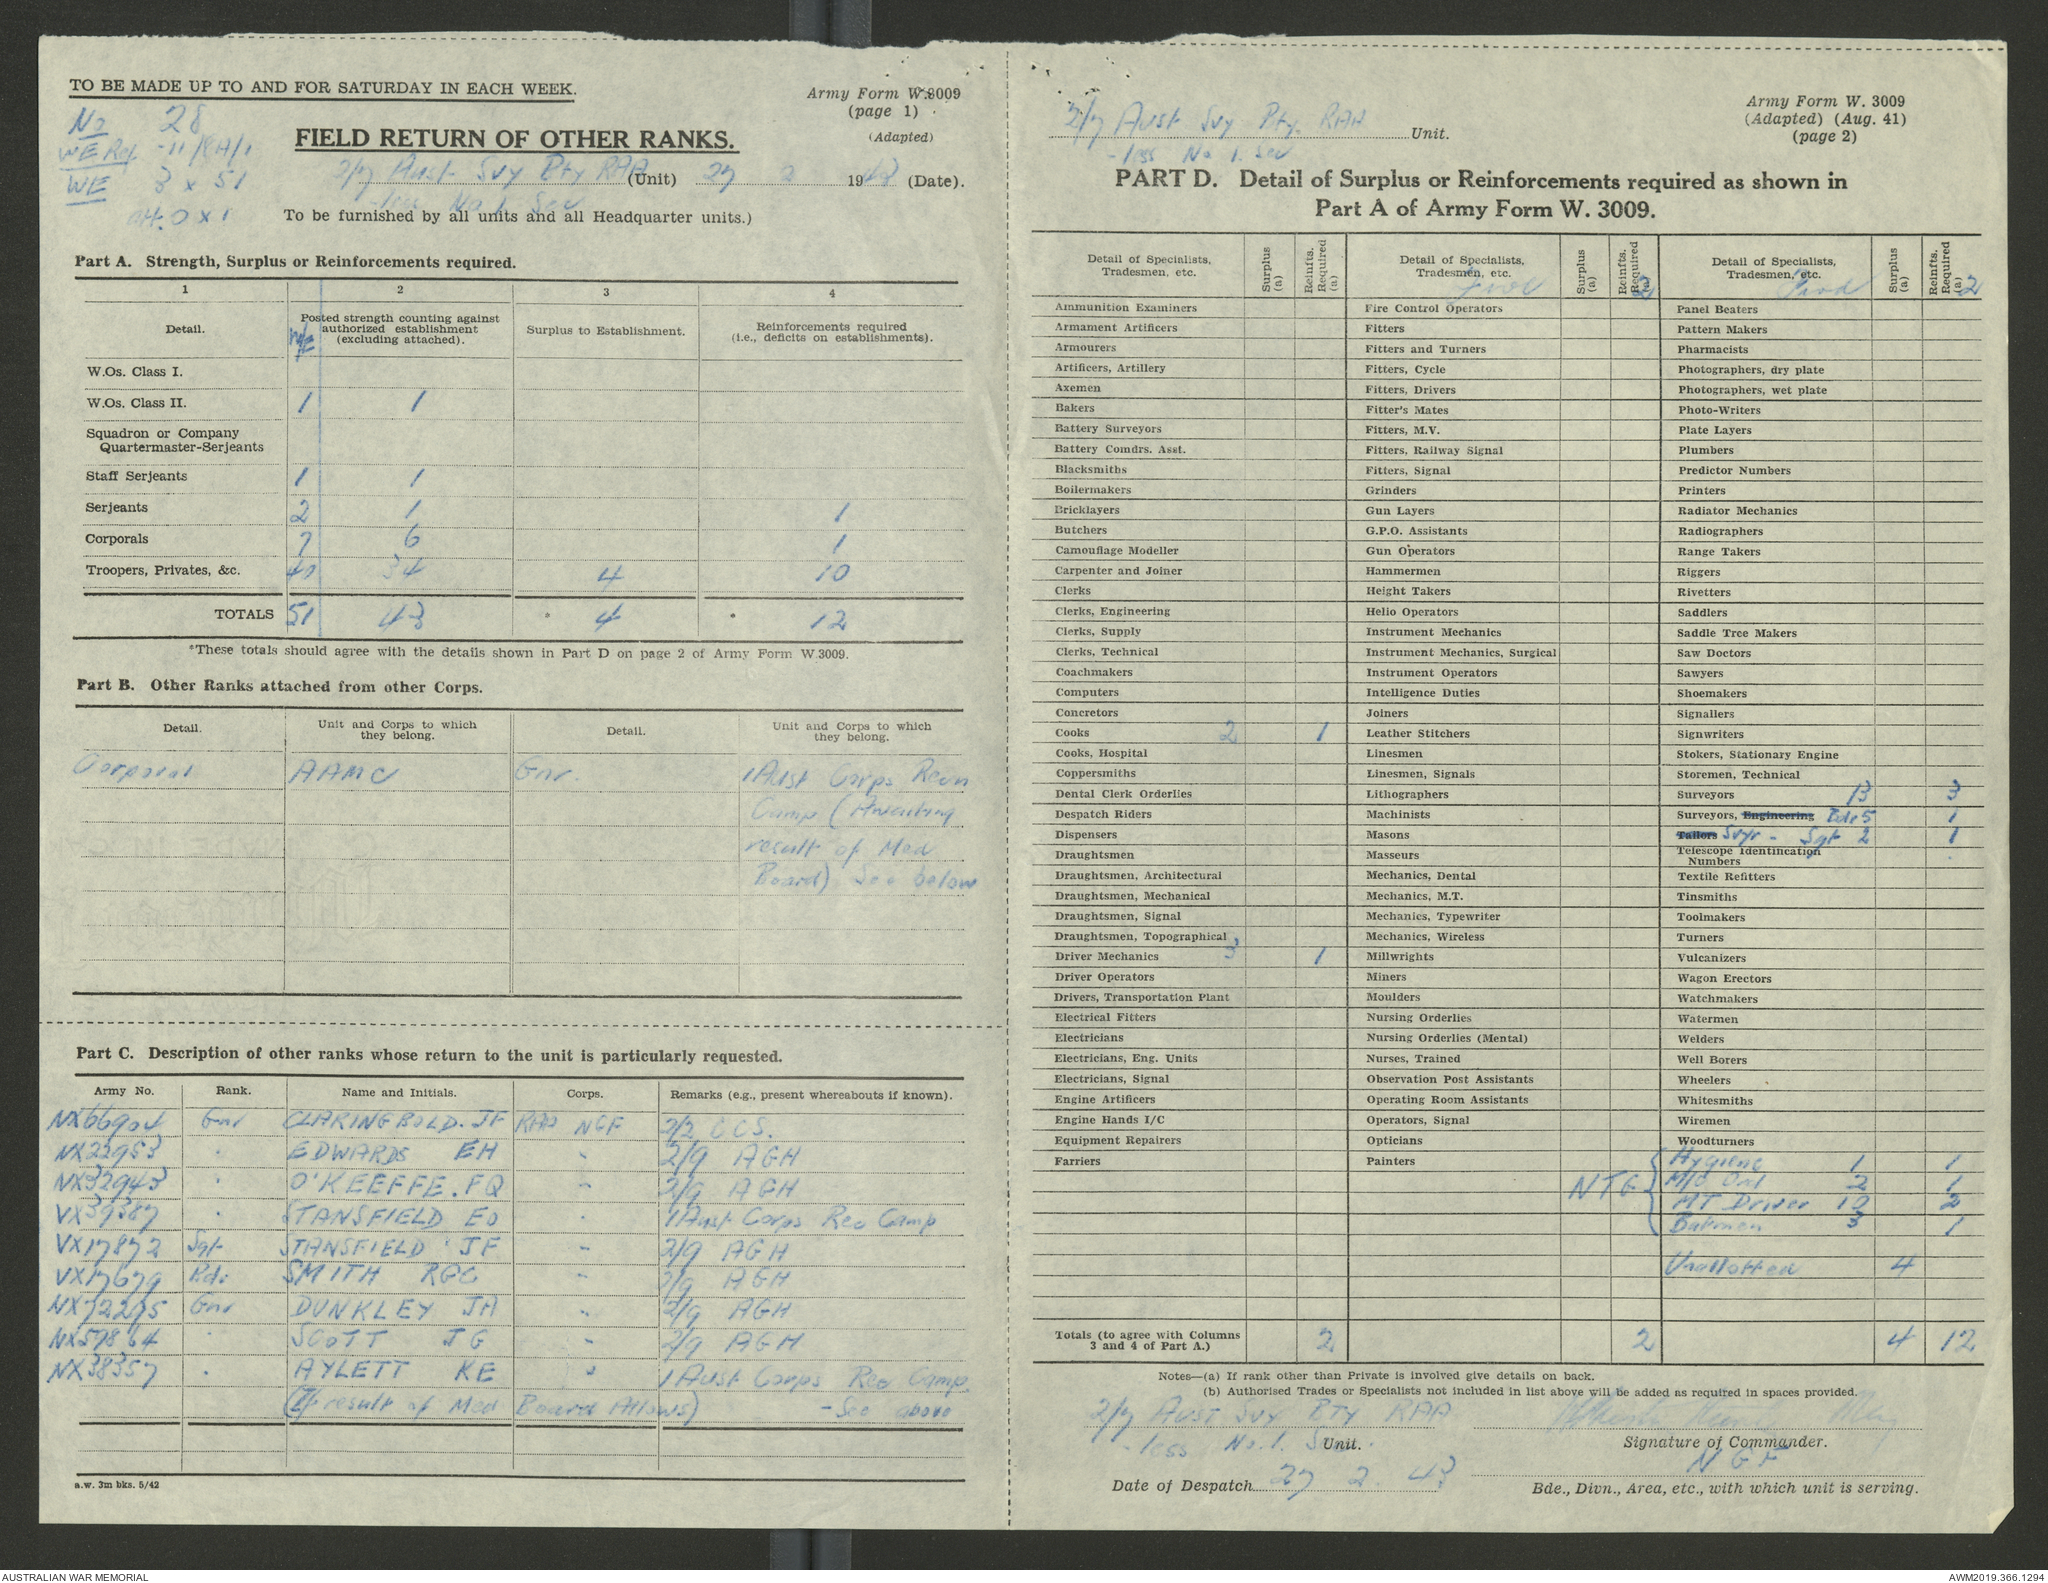 TO BE MADE UP TO AND FOR SATURDAY IN EACH WEEK.
Army Form W.3009
(page 1)
(Adapted)
No 28
WE Ref -11/
WE 3 x 51
att. 0 x 1
FIELD RETURN OF OTHER RANKS.
2/7 Aust Svy Bty RAA (Unit) 27 2 1943 (Date).
-less No 1. Sec
To be furnished by all units and all Headquarter units.)
Part A. Strength, Surplus or Reinforcements required.
1 2 3 4
Detail. W/E Posted strength counting against authorized establishment (excluding attached). Surplus to Establishment. Reinforcements required (i.e., deficits on establishments).
W.Os. Class I.
W.Os. Class II. 1 1
Squadron or Company
Quartermaster-Serjeants
Staff Serjeants 1 1
Serjeants 2 1 1
Corporals 7 6 1
Troopers, Privates, &c. 40 34 4 10
TOTALS 51 43 * 4 * 12
*These totals should agree with the details shown in Part D on page 2 of Army Form W.3009.
Part B. Other Ranks attached from other Corps.
Detail. Unit and Corps to which they belong. Detail. Unit and Corps to which they belong.
Corporal AAMC Gnr. 1 Aust Corps Recn
Camp (Awaiting
result of Med
Board) See below
Part C. Description of other ranks whose return to the unit is particularly requested.
Army No. Rank. Name and Initials. Corps. Remarks (e.g., present whereabouts if known).
NX66904 Gnr CLARINGBOLD. JF RAA NGF 2/2 CCS.
NX22953 " EDWARDS EH " 2/9 AGH
NX32943 " O'KEEFFE. FQ " 2/9 AGH
VX39387 " STANSFIELD EO " 1 Aust Corps Rec Camp
VX17872 Sgt STANSFIELD JF " 2/9 AGH
VX17679 Bdr SMITH RGC " 2/9 AGH
NX72295 Gnr DUNKLEY JA " 2/9 AGH
NX57864 " SCOTT JG " 2/9 AGH
NX38357 " AYLETT KE " 1 Aust Corps Rec Camp.
(If result of Med Board Allows) - See above
a.w. 3m bks. 5/42
2/7 Aust Svy Bty. RAA Unit.
- less No 1. Sec
Army Form W. 3009
(Adapted) (Aug. 41)
(page 2)
PART D. Detail of Surplus or Reinforcements required as shown in
Part A of Army Form W. 3009.
Detail of Specialists, Tradesmen, etc. Surplus (a) Reinfts. Required (a)
Ammunition Examiners
Armament Artificers
Armourers
Artificers, Artillery
Axemen
Bakers
Battery Surveyors
Battery Comdrs. Asst.
Blacksmiths
Boilermakers
Bricklayers
Butchers
Camouflage Modeller
Carpenter and Joiner
Clerks
Clerks, Engineering
Clerks, Supply
Clerks, Technical
Coachmakers
Computers
Concretors
Cooks 2 1
Cooks, Hospital
Coppersmiths
Dental Clerk Orderlies
Despatch Riders
Dispensers
Draughtsmen
Draughtsmen, Architectural
Draughtsmen, Mechanical
Draughtsmen, Signal
Draughtsmen, Topographical
Driver Mechanics 3 1
Driver Operators
Drivers, Transportation Plant
Electrical Fitters
Electricians
Electricians, Eng. Units
Electricians, Signal
Engine Artificers
Engine Hands I/C
Equipment Repairers
Farriers
Totals (to agree with Columns 3 and 4 of Part A.) 2
Detail of Specialists, Tradesmen, etc. Surplus (a) Reinfts. Required (a)
2
Fire Control Operators
Fitters
Fitters and Turners
Fitters, Cycle
Fitters, Drivers
Fitter's Mates
Fitters, M.V.
Fitters, Railway Signal
Fitters, Signal
Grinders
Gun Layers
G.P.O. Assistants
Gun Operators
Hammermen
Height Takers
Helio Operators
Instrument Mechanics
Instrument Mechanics, Surgical
Instrument Operators
Intelligence Duties
Joiners
Leather Stitchers
Linesmen
Linesmen, Signals
Lithographers
Machinists
Masons
Masseurs
Mechanics, Dental
Mechanics, M.T.
Mechanics, Typewriter
Mechanics, Wireless
Millwrights
Miners
Moulders
Nursing Orderlies
Nursing Orderlies (Mental)
Nurses, Trained
Observation Post Assistants
Operating Room Assistants
Operators, Signal
Opticians
Painters
2
Detail of Specialists, Tradesmen, etc. Surplus (a) Reinfts. Required (a)
2
Panel Beaters
Pattern Makers
Pharmacists
Photographers, dry plate
Photographers, wet plate
Photo-Writers
Plate Layers
Plumbers
Predictor Numbers
Printers
Radiator Mechanics
Radiographers
Range Takers
Riggers
Rivetters
Saddlers
Saddle Tree Makers
Saw Doctors
Sawyers
Shoemakers
Signallers
Signwriters
Stokers, Stationary Engine
Storemen, Technical
Surveyors 13 3
Surveyors, Engineering Bdr 5 1
Tailors Svyr - Sgt 2 1
Telescope Identification Numbers
Textile Refitters
Tinsmiths
Toolmakers
Turners
Vulcanizers
Wagon Erectors
Watchmakers
Watermen
Welders
Well Borers
Wheelers
Whitesmiths
Wiremen
Woodturners
NTG { Hygiene 1 1
2 1
MT Driver 10 2
Batmen 3 1
Unallotted 4
4 12
Notes—(a) If rank other than Private is involved give details on back.
(b) Authorised Trades or Specialists not included in list above will be added as required in spaces provided.
2/7 AUST SVY BTY RAA
- less No. 1. Sec. Unit.
Signature of Commander.
Date of Despatch 27 2. 43
NGF
Bde., Divn., Area, etc., with which unit is serving.
AUSTRALIAN WAR MEMORIAL
AWM2019.366.1294